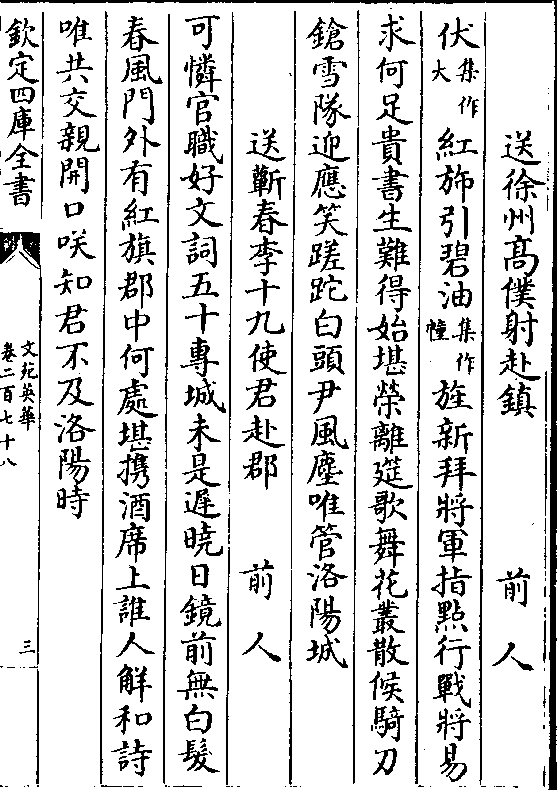 送徐州高僕射赴鎮　前人
伏集作大紅斾引碧油集作幢旌新拜將軍指點行戰將易
求何足貴書生難得始堪榮離筵歌舞花叢散候騎刀
鎗雪隊迎應笑蹉跎白頭尹風塵唯管洛陽城
送蘄春李十九使君赴郡　前人
可憐官職好文詞五十專城未是遲曉日鏡前無白髮
春風門外有紅旗郡中何處堪携酒席上誰人解和詩
唯共交親開口咲知君不及洛陽時
欽定四庫全書
文苑英華
卷二百七十八
三